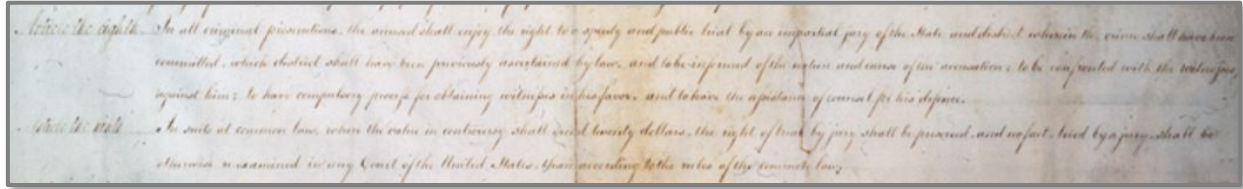 Article the eighth In all criminal prosecutions, the accused shall enjoy the right to a speedy and public trial by an impartial jury of the State and district wherein the crime shall have been
committed, which district shall have been previously ascertained by law, and to be informed of the nature and cause of the accusation; to be confronted with the witnesses
against him; to have compulsory process for obtaining witnesses in his favor, and to have the assistance of counsel for his defence.
Article the ninth In suits at common law, where the value in controversy shall exceed twenty dollars, the right of trial by jury shall be preserved, and no fact, tried by a jury, shall be
otherwise re-examined in any Court of the United States, than according to the rules of the common law.